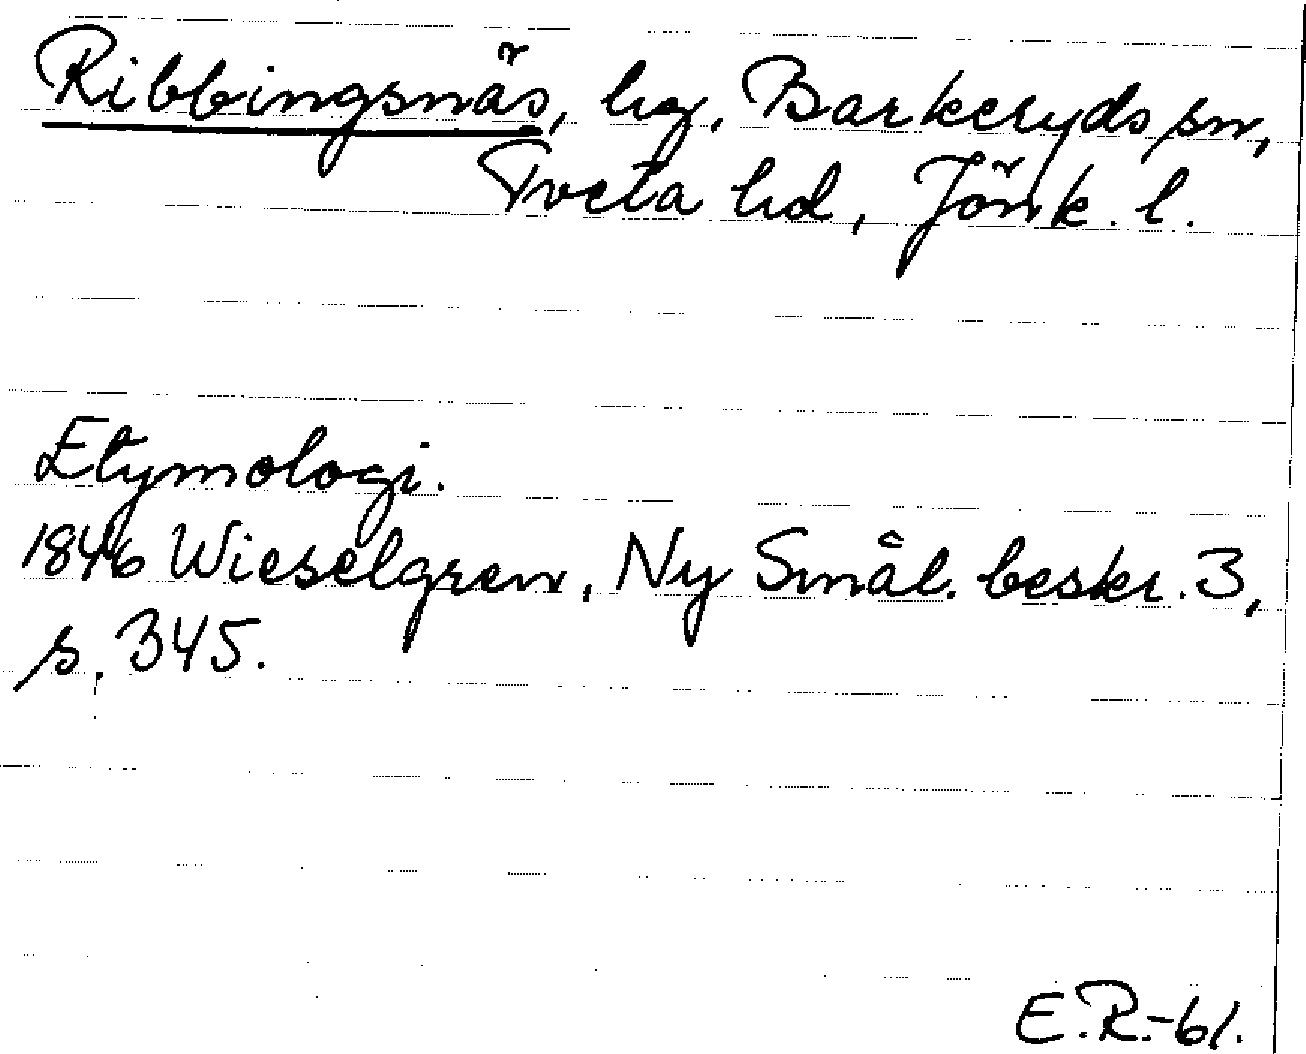 Ribbingsnäs, hg, Barkeryds sn,
Tveta hd, Jönk. l.
Etymologi.
1846 Wieselgren, Ny Smål. beskr. 3,
s. 345.
E.R.-61.